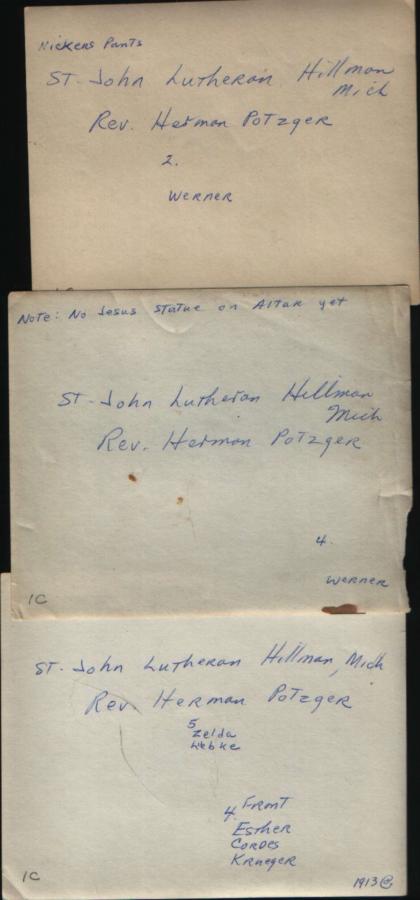 Nickers Pants
ST. John Lutheran Hillman
Mich
Rev. Herman Potzger
2.
Werner
Note: No Jesus Statue on Altar yet
ST. John Lutheran Hillman
Mich
Rev. Herman Potzger
4.
Werner
1C
ST. John Lutheran Hillman, Mich
Rev. Herman Potzger
5
Zelda
4. Front
Esther
Cordes
Krueger
1C
1913